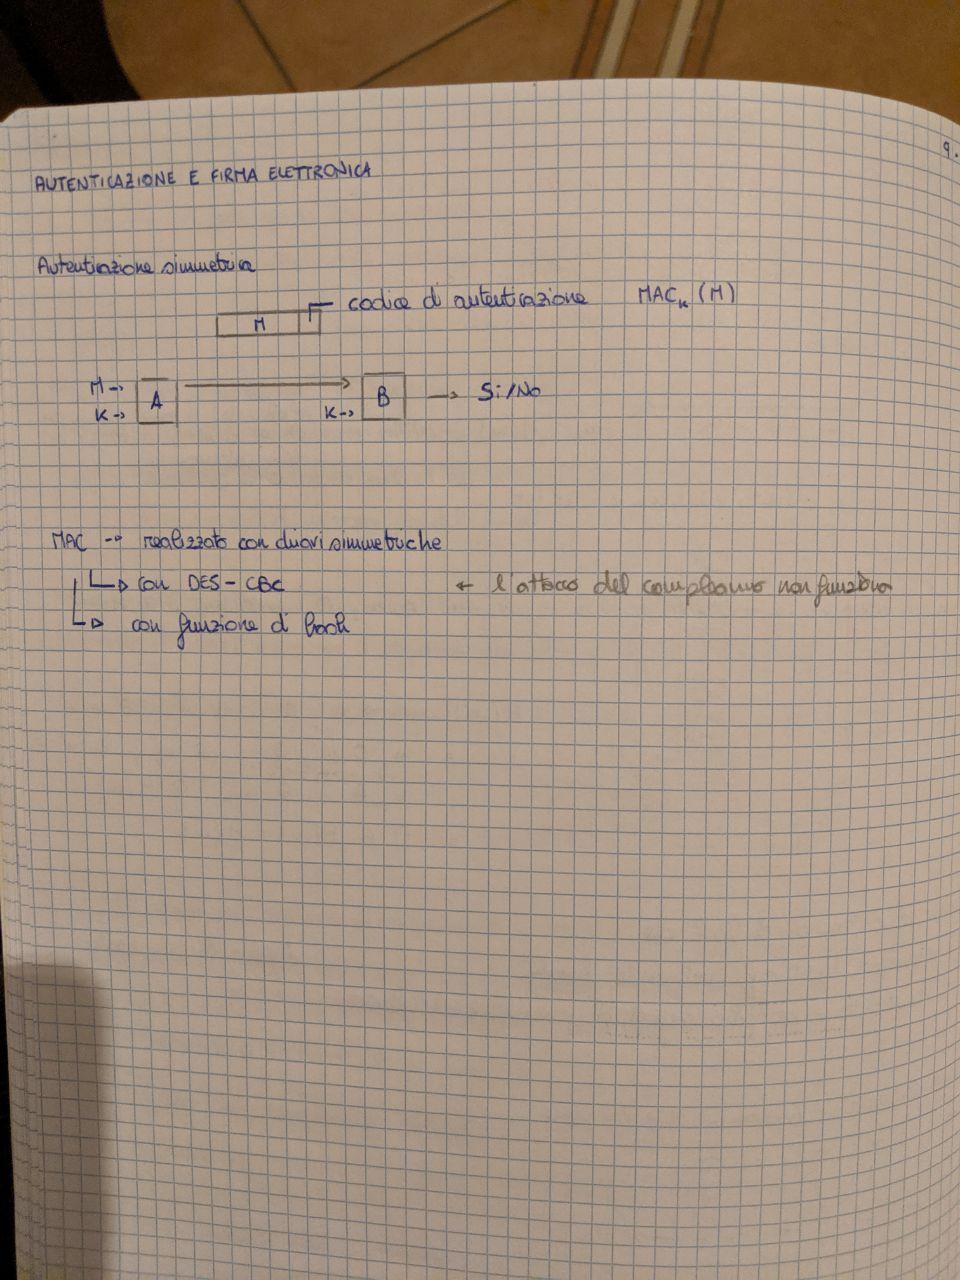 9.
AUTENTICAZIONE E FIRMA ELETTRONICA
Autenticazione simmetrica
codice di autenticazione MACₖ (M)
M
M → A → B → Si/No
K → K →
MAC → realizzato con chiavi simmetriche
con DES - CBC ← l'attacco del compleanno non funziona
con funzione di hash